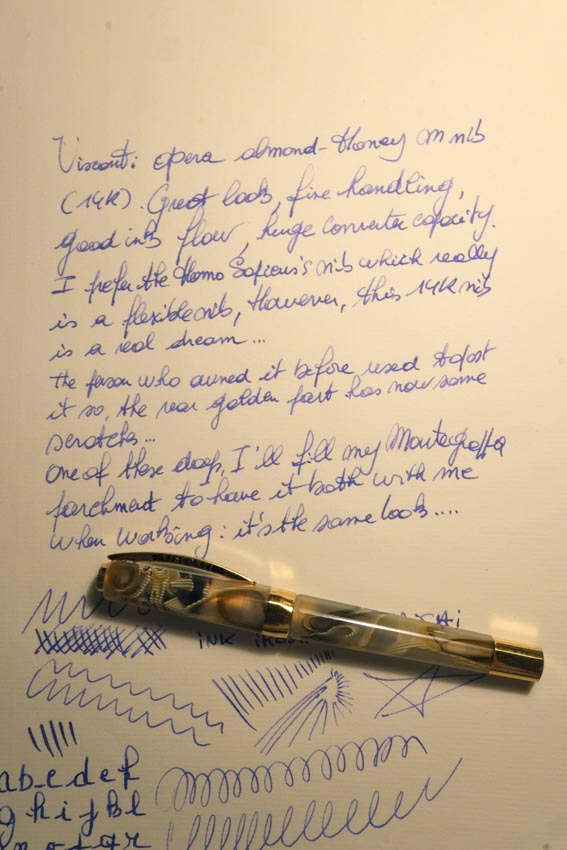 Visconti opera almond-Honey M nib
(14K). Great look, fine handling,
good ink flow, huge converter capacity.
I prefer the Homo Sapiens's nib which really
is a flexible nib, However, this 14K nib
is a real dream ...
the person who owned it before used to post
it so, the rear golden part has now some
scratchs...
one of these days, I'll fill my Montegrappa
parchment to have it both with me
when working: it's the same look....
INK
a b c d e f
g h i j k l